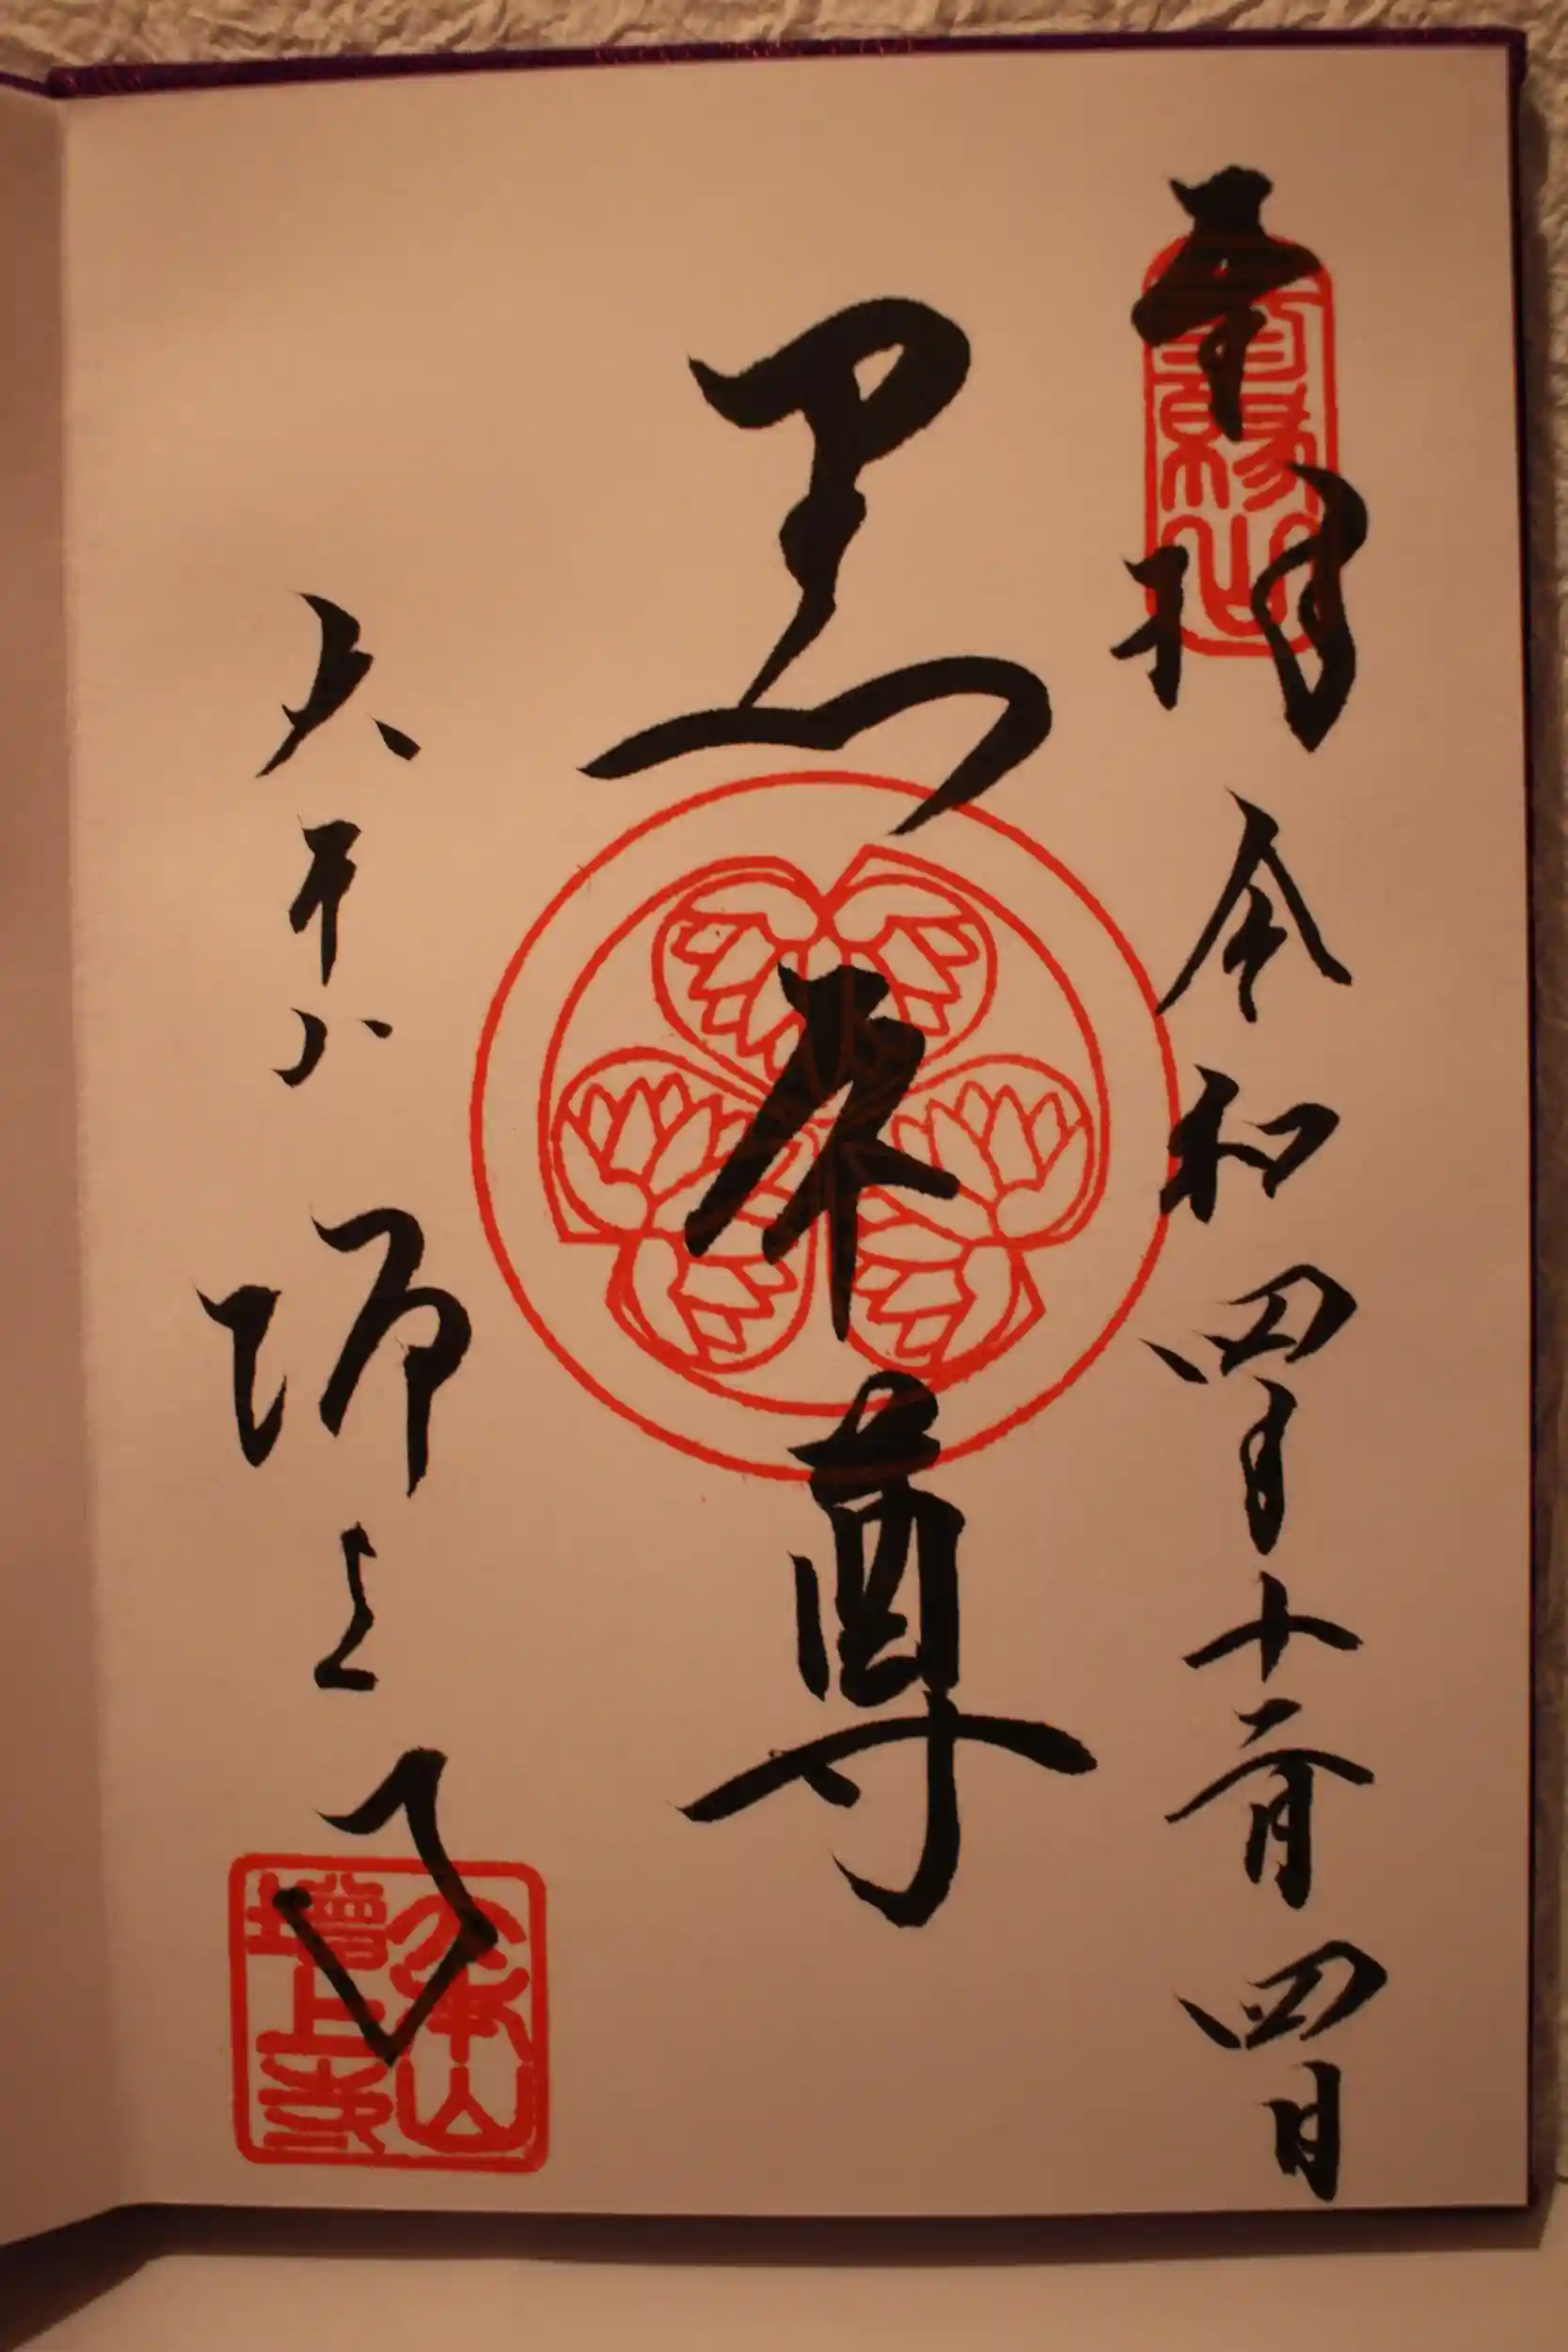 奉拝 令和四年十二月四日
三縁山
黒本尊
大本山増上寺
大本山
増上寺